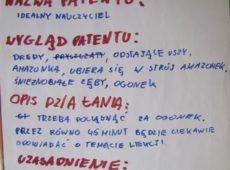 NAZWA PATENTU:
IDEALNY NAUCZYCIEL
WYGLĄD PATENTU:
DREDY, PRYSZCZATY, ODSTAJĄCE USZY,
AMAZONKA, UBIERA SIĘ W STRÓJ AMAZONEK,
ŚNIEŻNOBIAŁE ZĘBY, OGONEK
OPIS DZIAŁANIA:
TRZEBA POCIĄGNĄĆ ZA OGONEK.
PRZEZ RÓWNO 45 MINUT BĘDZIE CIEKAWIE
OPOWIADAĆ O TEMACIE LEKCJI.
UZASADNIENIE: